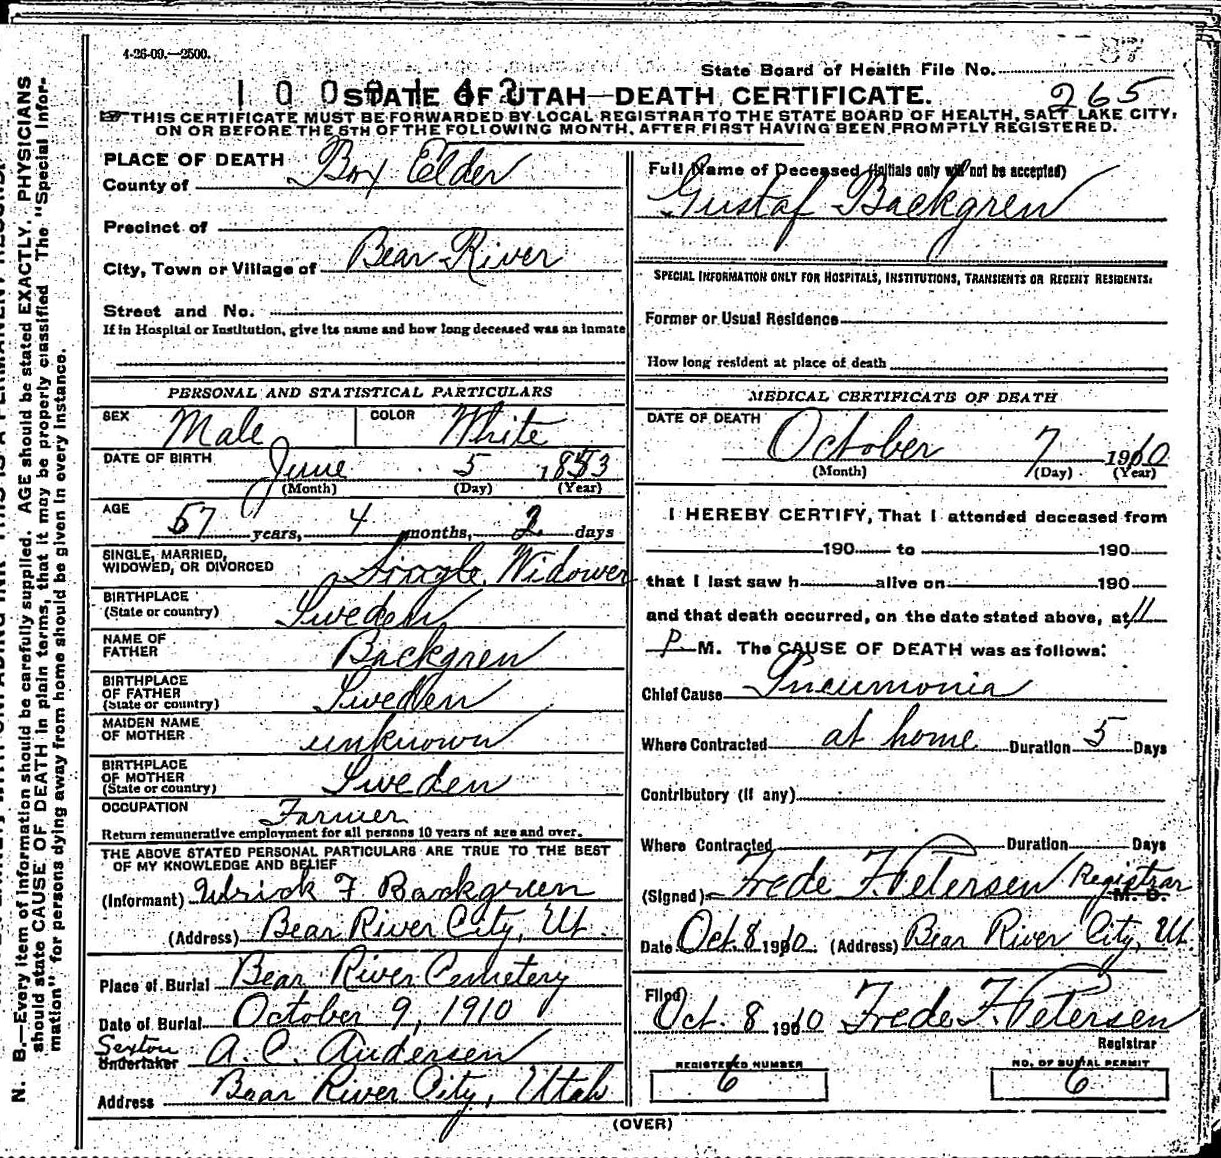 4-26-09.—2500.
State Board of Health File No. 87
265
STATE OF UTAH—DEATH CERTIFICATE.
THIS CERTIFICATE MUST BE FORWARDED BY LOCAL REGISTRAR TO THE STATE BOARD OF HEALTH, SALT LAKE CITY,
ON OR BEFORE THE 5TH OF THE FOLLOWING MONTH, AFTER FIRST HAVING BEEN PROMPTLY REGISTERED.
PLACE OF DEATH
County of Box Elder
Precinct of
City, Town or Village of Bear River
Street and No.
If in Hospital or Institution, give its name and how long deceased was an inmate
PERSONAL AND STATISTICAL PARTICULARS
SEX Male COLOR White
DATE OF BIRTH June 5 1853
(Month) (Day) (Year)
AGE 57 years, 4 months, 2 days
SINGLE, MARRIED,
WIDOWED, OR DIVORCED Widower
BIRTHPLACE
(State or country) Sweden
NAME OF
FATHER Backgren
BIRTHPLACE
OF FATHER
(State or country) Sweden
MAIDEN NAME
OF MOTHER unknown
BIRTHPLACE
OF MOTHER
(State or country) Sweden
OCCUPATION Farmer
Return remunerative employment for all persons 10 years of age and over.
THE ABOVE STATED PERSONAL PARTICULARS ARE TRUE TO THE BEST
OF MY KNOWLEDGE AND BELIEF
(Informant) Ulrick F Backgreen
(Address) Bear River City, Ut.
Place of Burial Bear River Cemetery
Date of Burial October 9, 1910
Sexton
Undertaker A. C. Andersen
Address Bear River City, Utah
Full Name of Deceased (Initials only will not be accepted)
Gustaf Backgren
SPECIAL INFORMATION ONLY FOR HOSPITALS, INSTITUTIONS, TRANSIENTS OR RECENT RESIDENTS.
Former or Usual Residence
How long resident at place of death
MEDICAL CERTIFICATE OF DEATH
DATE OF DEATH October 7 1910
(Month) (Day) (Year)
I HEREBY CERTIFY, That I attended deceased from
190 to 190
that I last saw h alive on 190
and that death occurred, on the date stated above, at 11
P M. The CAUSE OF DEATH was as follows:
Chief Cause Pneumonia
Where Contracted at home Duration 5 Days
Contributory (if any)
Where Contracted Duration Days
(Signed) Frede F. Petersen Registrar M. D.
Date Oct. 8 1910 (Address) Bear River City, Ut.
Filed
Oct. 8 1910 Frede F. Petersen
Registrar
REGISTERED NUMBER
6
NO. OF BURIAL PERMIT
6
(OVER)
N. B.—Every item of information should be carefully supplied. AGE should be stated EXACTLY. PHYSICIANS
should state CAUSE OF DEATH in plain terms, that it may be properly classified. The "Special Infor-
mation" for persons dying away from home should be given in every instance.